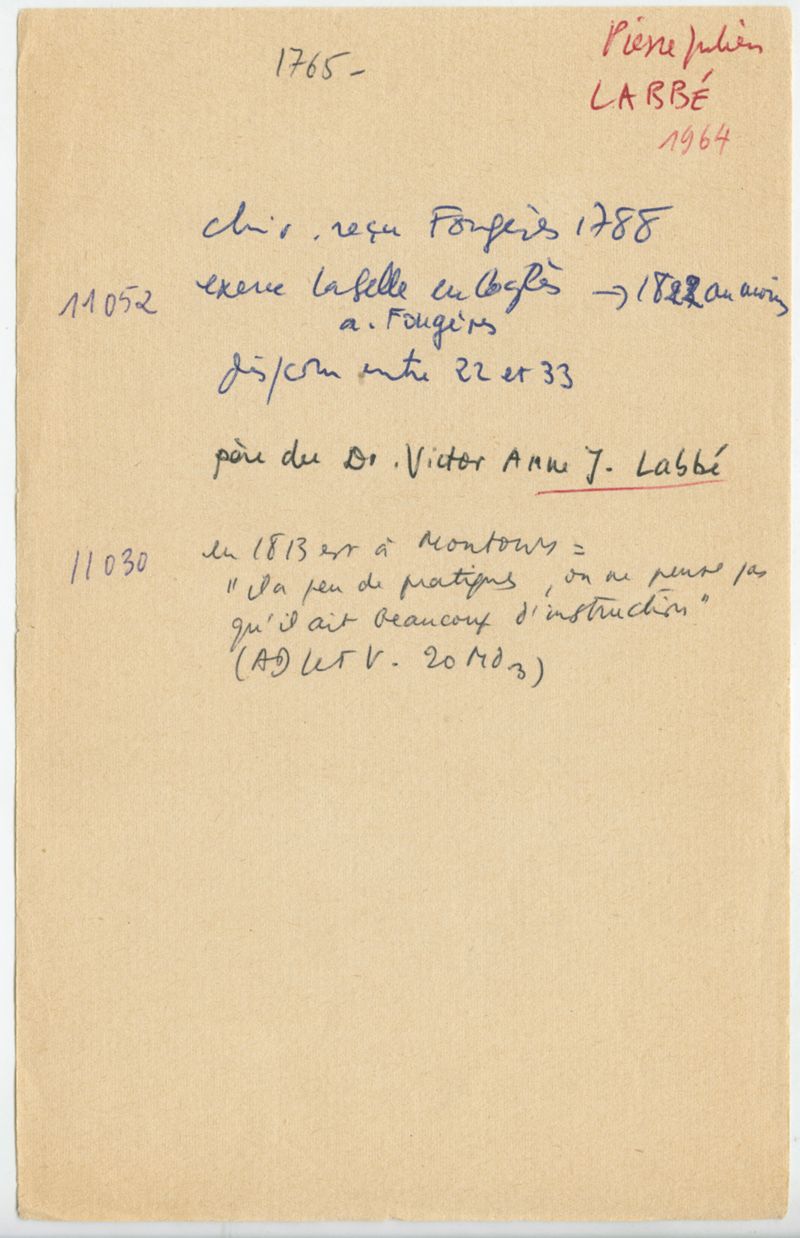 1765 -
Pierre Julien
LABBÉ
1964
chir. reçu Fougères 1788
11052 exerce La Selle en Coglès → 1822 au moins
a. Fougères
entre 22 et 33
père du Dr. Victor Anne J. Labbé
11030 en 1813 est à Montours =
"il a peu de pratiques, on ne pense pas
qu'il ait beaucoup d'instruction"
(AD I et V. 20 Md 3)